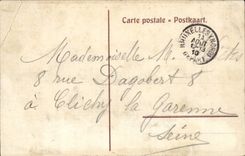 Carte postale - Postkaart.
BRUXELLES (NORD)
11
AOUT
19
DEPART
Mademoiselle M.
8 rue Dagobert 8
à Clichy la Garenne
Seine